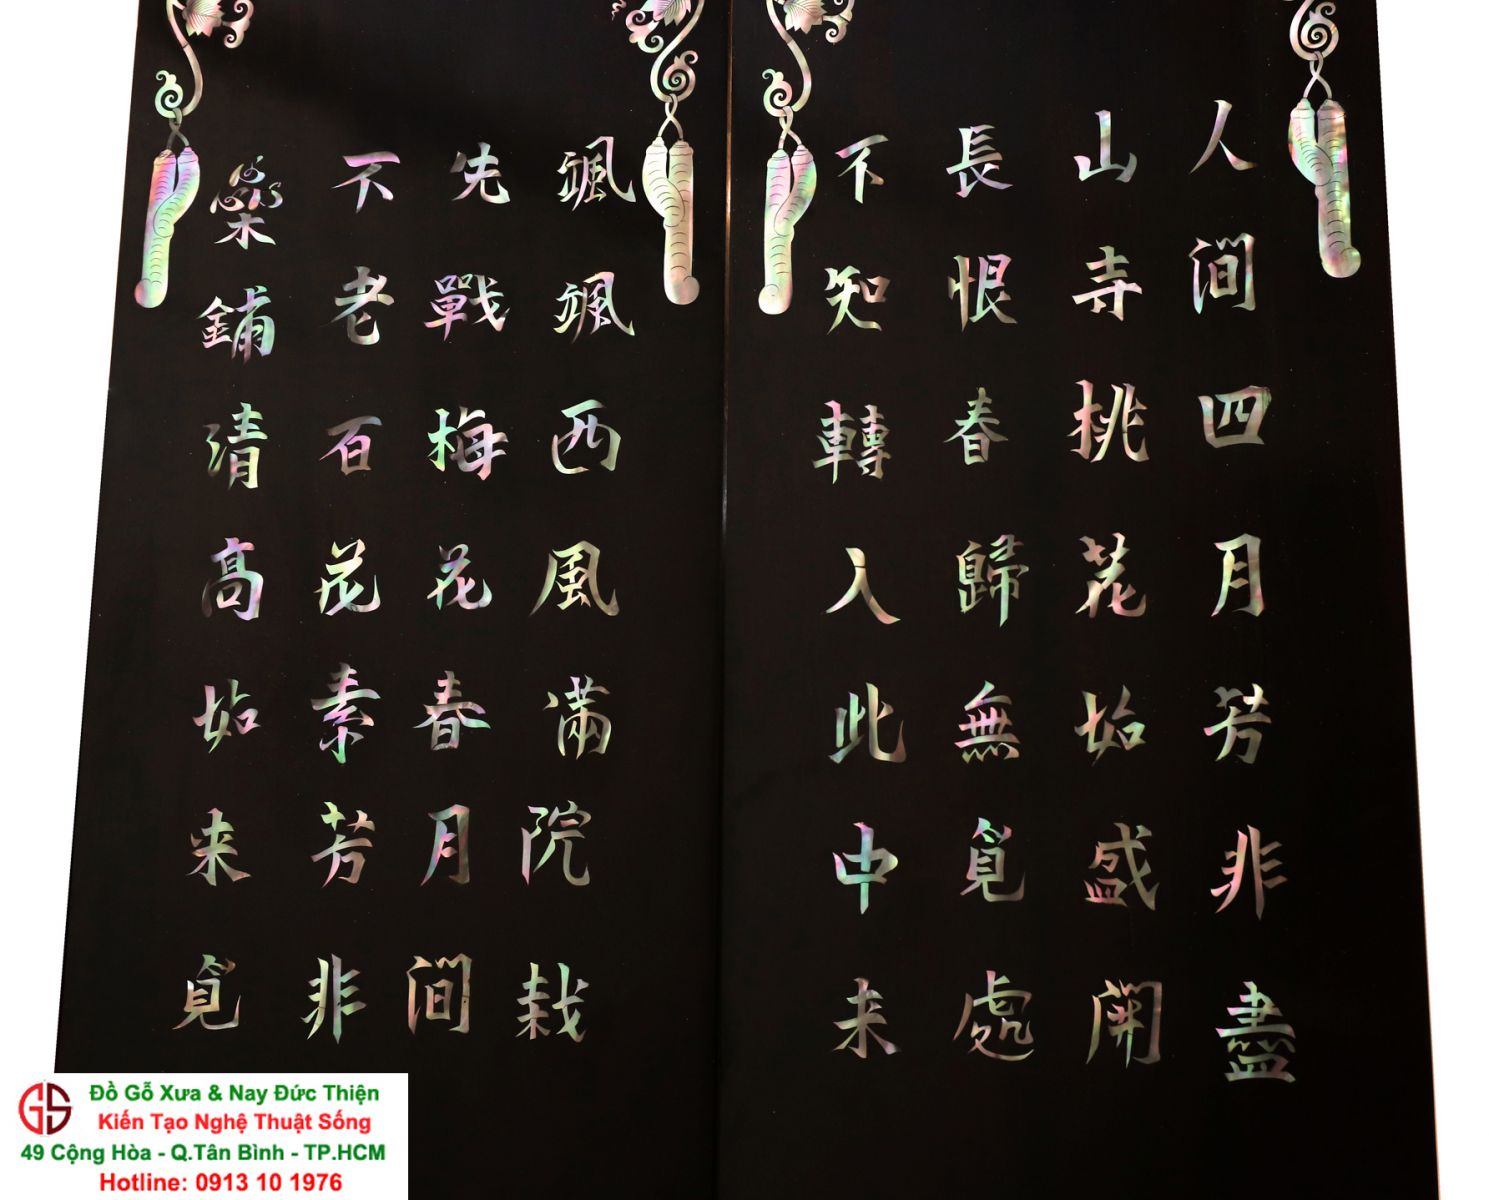 人間四月芳非盡
山寺桃花始盛開
長恨春歸無覓處
不知轉入此中来
颯颯西風滿院栽
先戰梅花春月間
不老百花素芳非
橤鋪清高如来覓
Đồ Gỗ Xưa & Nay Đức Thiện
Kiến Tạo Nghệ Thuật Sống
49 Cộng Hòa - Q.Tân Bình - TP.HCM
Hotline: 0913 10 1976